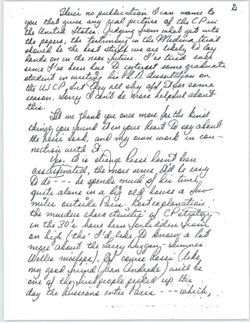 There's no publication I can name to
you that gives any real picture of the CP in
the United States. Judging from what gets into
the papers, the testimony in the trial
should be the best stuff we are likely to lay
hands on in the near future. I've tried ever
since I've been to interest some graduate
student in writing his Ph.D. dissertation on
the US CP, but they all shy off for some
reason. Sorry I can't be more helpful about
this.
Let me thank you once more for the kind
things you found it in your heart to say about
the Rossi book, and my own work in con-
nection with it.
Yes, it is strange Rossi hasn't been
assassinated, the more since it'd be easy
to do --- he spends much of his time
quite alone in a big old house a few
miles outside Paris. Best explanation:
the murders characteristic of CP strategy
in the 30's have been forbidden from
on high (tho' I'd like to know a lot
more about the Larry Duggan - Sumner
Welles matter). Of course Rossi (like
my good friend) will be
one of the first people picked up the
day the Russians enter Paris --- which,